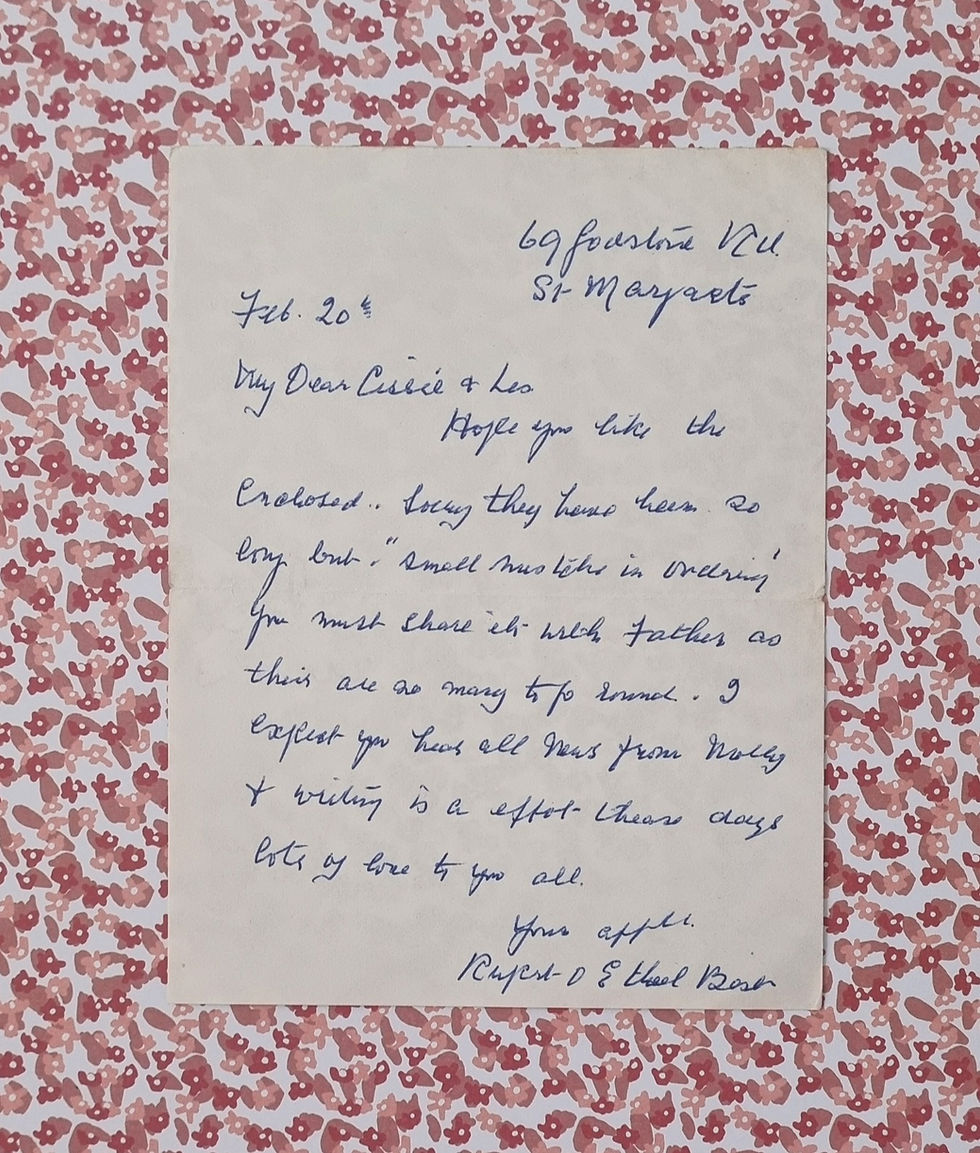 69 Godstone Rd.
St Margarets
Feb. 20th
My Dear Cissie & Les
Hope you like the
enclosed.. Sorry they have been so
long but. "small mistake in ordering'
you must share it with Father as
their are so many to go round. I
expect you hear all news from Molly
& writing is a effot these days
lots of love to you all.
Yours affte.
Rupert & Ethel